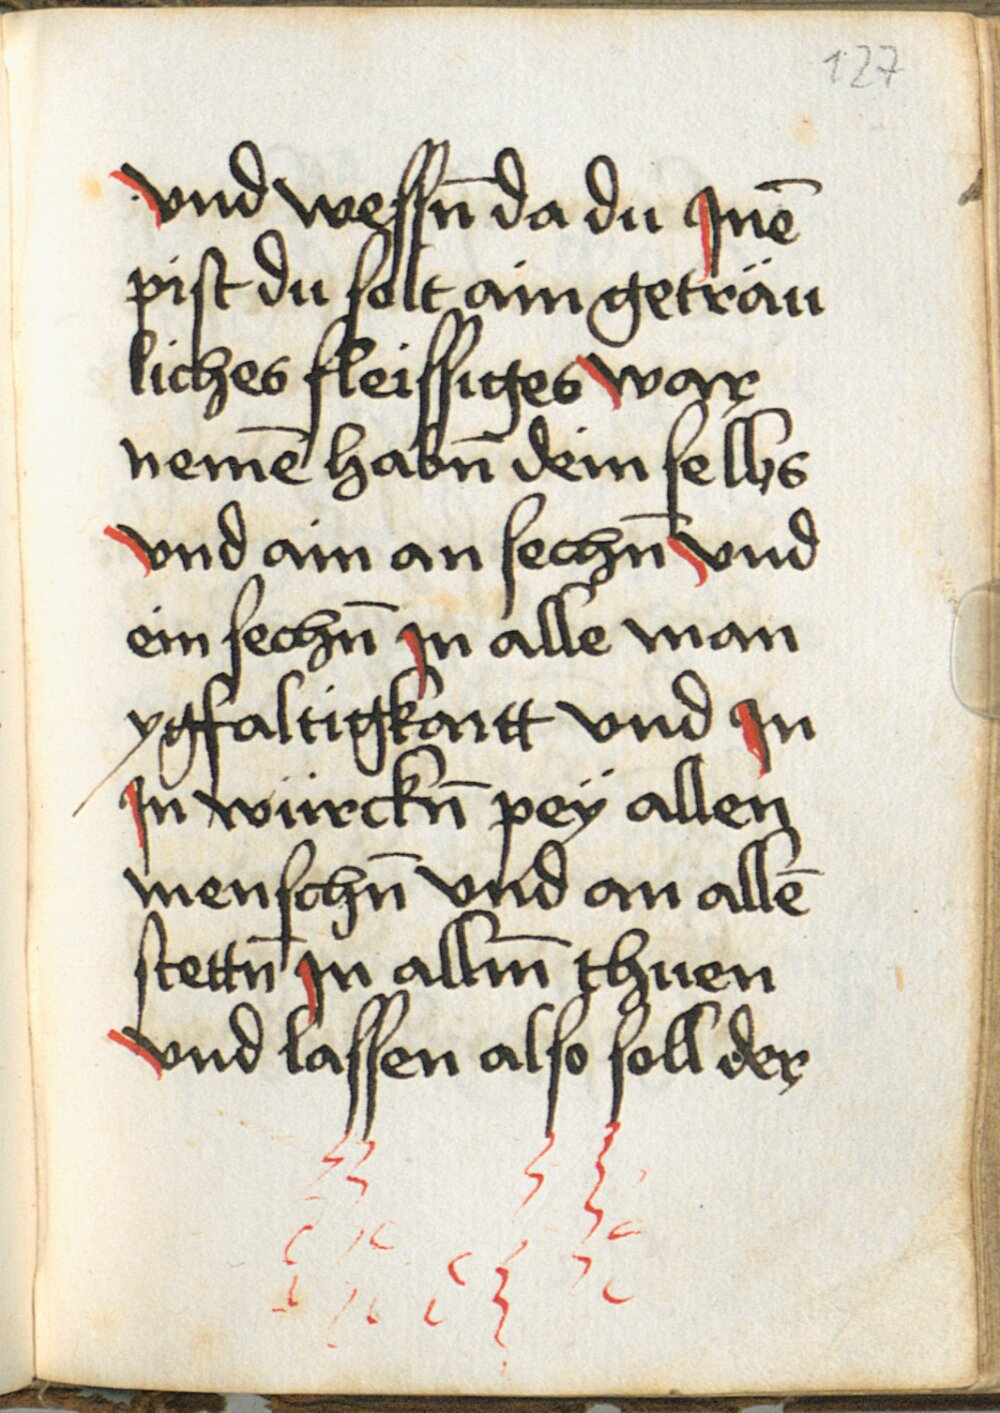 127
vnd wessn̄ da du Jnē
pist du solt ain geträu
liches fleissiges war
nemē habn̄ dein selbs
vnd ain an sechn̄ vnd
ein sechn̄ Jn alle man
ygfaltigkaitt vnd Jn
Jn würckn̄ peÿ allen
menschn̄ vnd an allē
stettn̄ Jn allm̄ thuen
vnd lassen also soll der